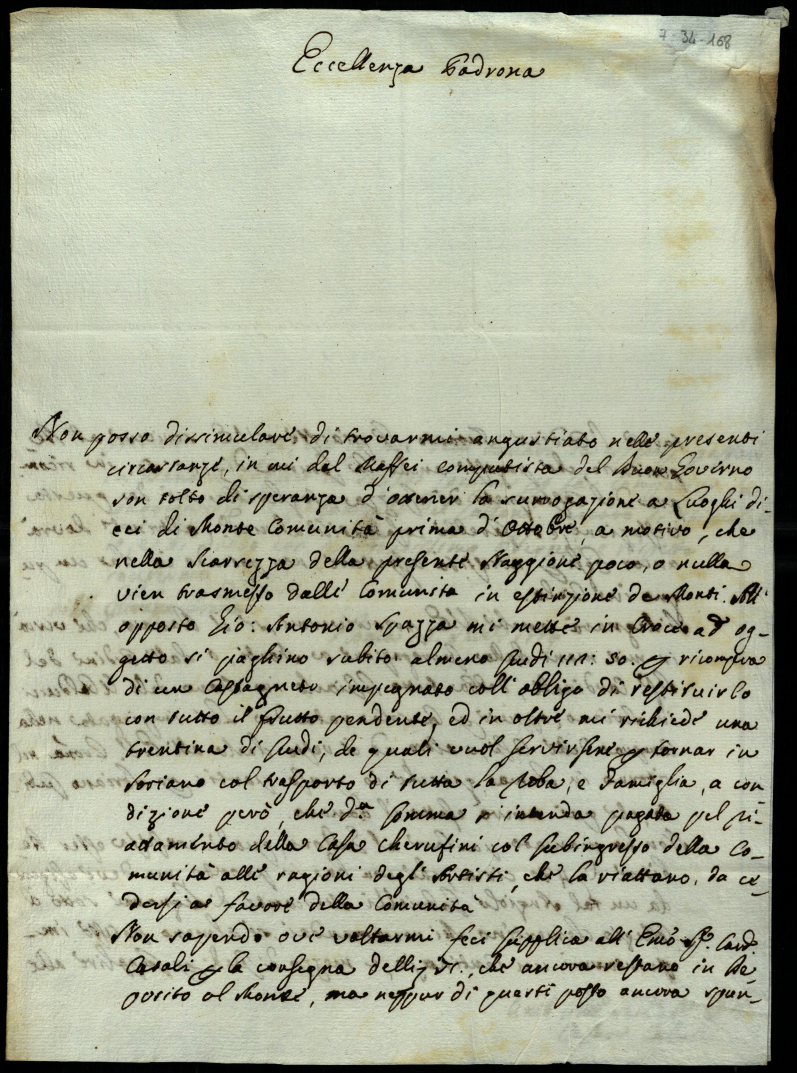 7-34-168
Eccellenza Padrona
Non posso dissimulare di trovarmi angustiato nelle presenti
circostanze, in cui dal Maffei computista del Buon Governo
son tolto di speranza d'ottener la surrogazione a Luoghi di-
eci di Monte Comunità prima d'Ottobre, a motivo, che
nella scarsezza della presente Staggione poco, o nulla
vien trasmesso dalle Comunita in estinzione de Monti. All'
opposto Gio: Antonio Spazza mi mette in Croce ad og-
getto si paghino subito almeno scudi 50. ricompra
di un Castagneto impegnato coll'obligo di restituirlo
con tutto il frutto pendente, ed in oltre mi richiede una
trentina di scudi, de quali vuol servirsene tornar in
Soriano col trasporto di tutta la roba, e Famiglia, a con
dizione però, che d.ta somma s'intenda pagata pel ri-
attamento della Casa Cherufini col subingresso della Co-
munità alle ragioni degl'Artisti, che la riattano, da ce-
dersi a favore della Comunità
Non sapendo ove voltarmi feci supplica all'Emo Sr. Card.
Casali la consegna delli che ancora restano in De-
posito al Monte, ma neppur di questi posso ancora spun-